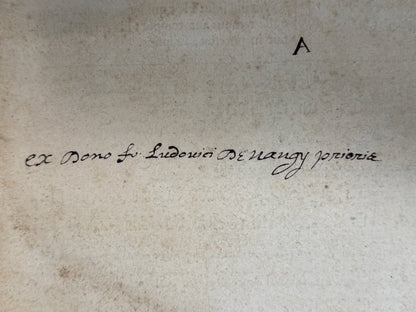 A
ex Dono fr Ludovici DE Nangy prioris